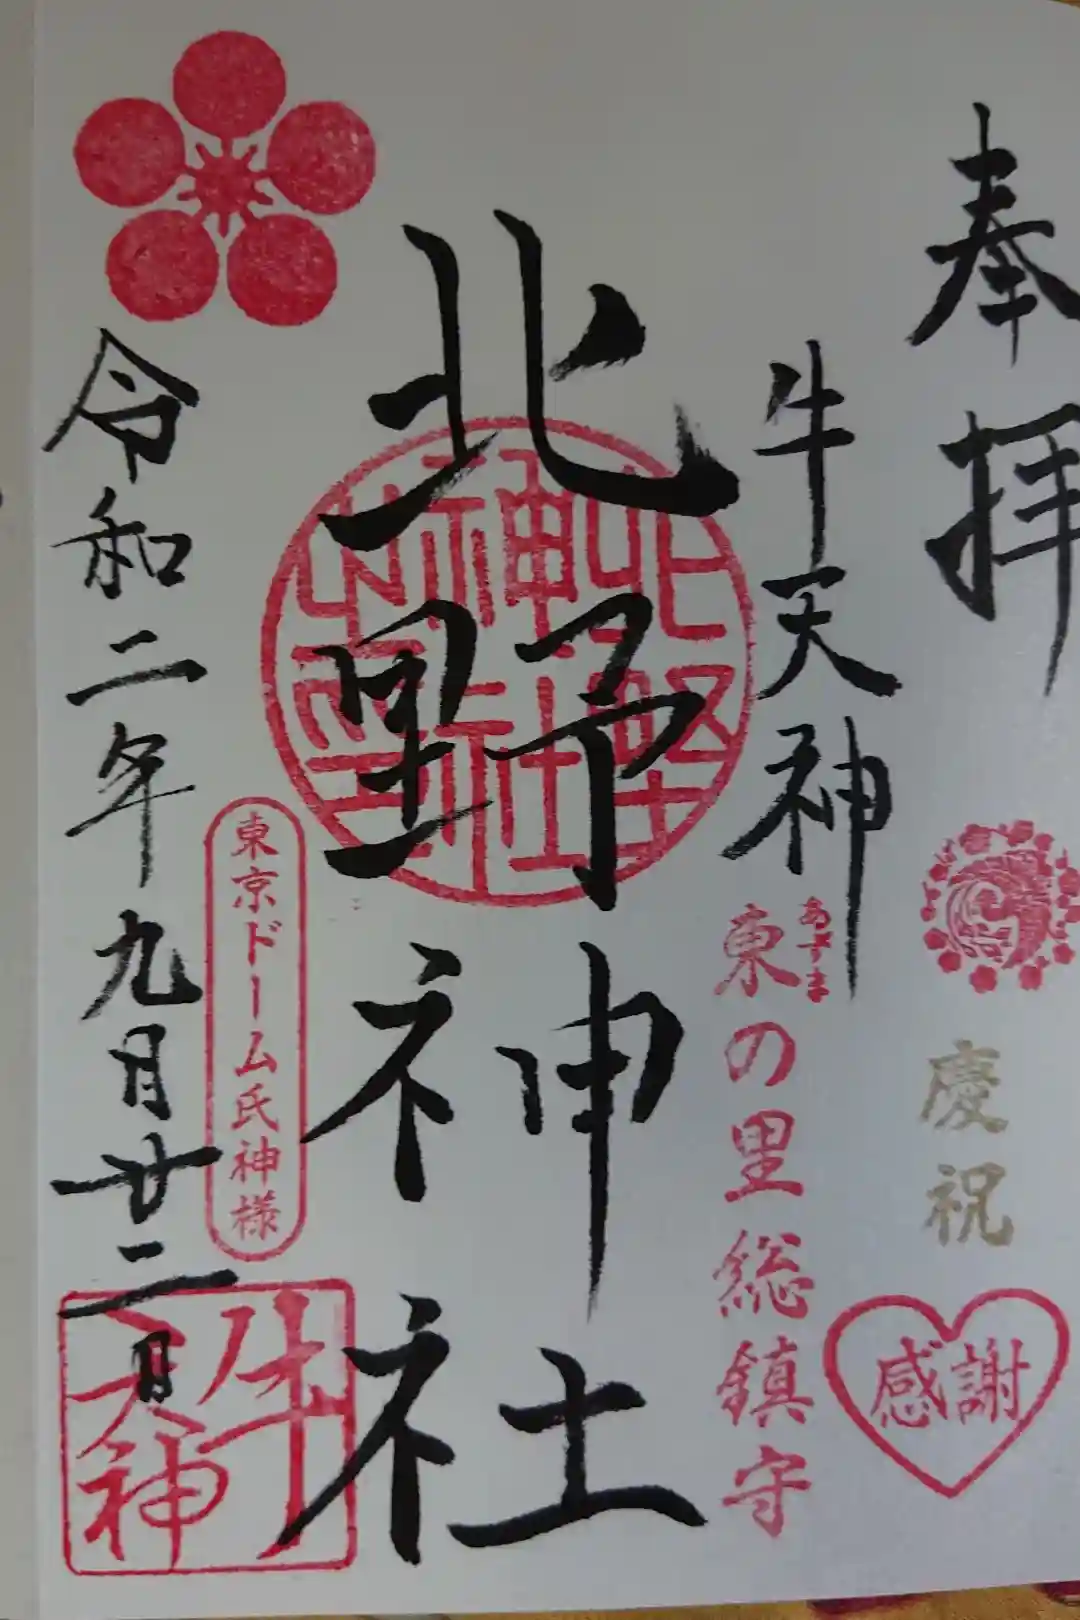 奉拝
慶祝
感謝
牛天神
あずま
東の里総鎮守
北野神社
北野神社
東京ドーム氏神様
令和二年九月廿二日
牛天神